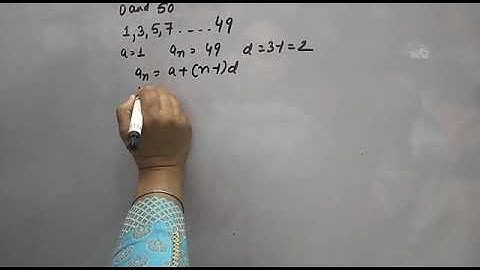 0 and 50
1, 3, 5, 7 ..... 49
a = 1 an = 49 d = 3-1 = 2
an = a + (n-1)d